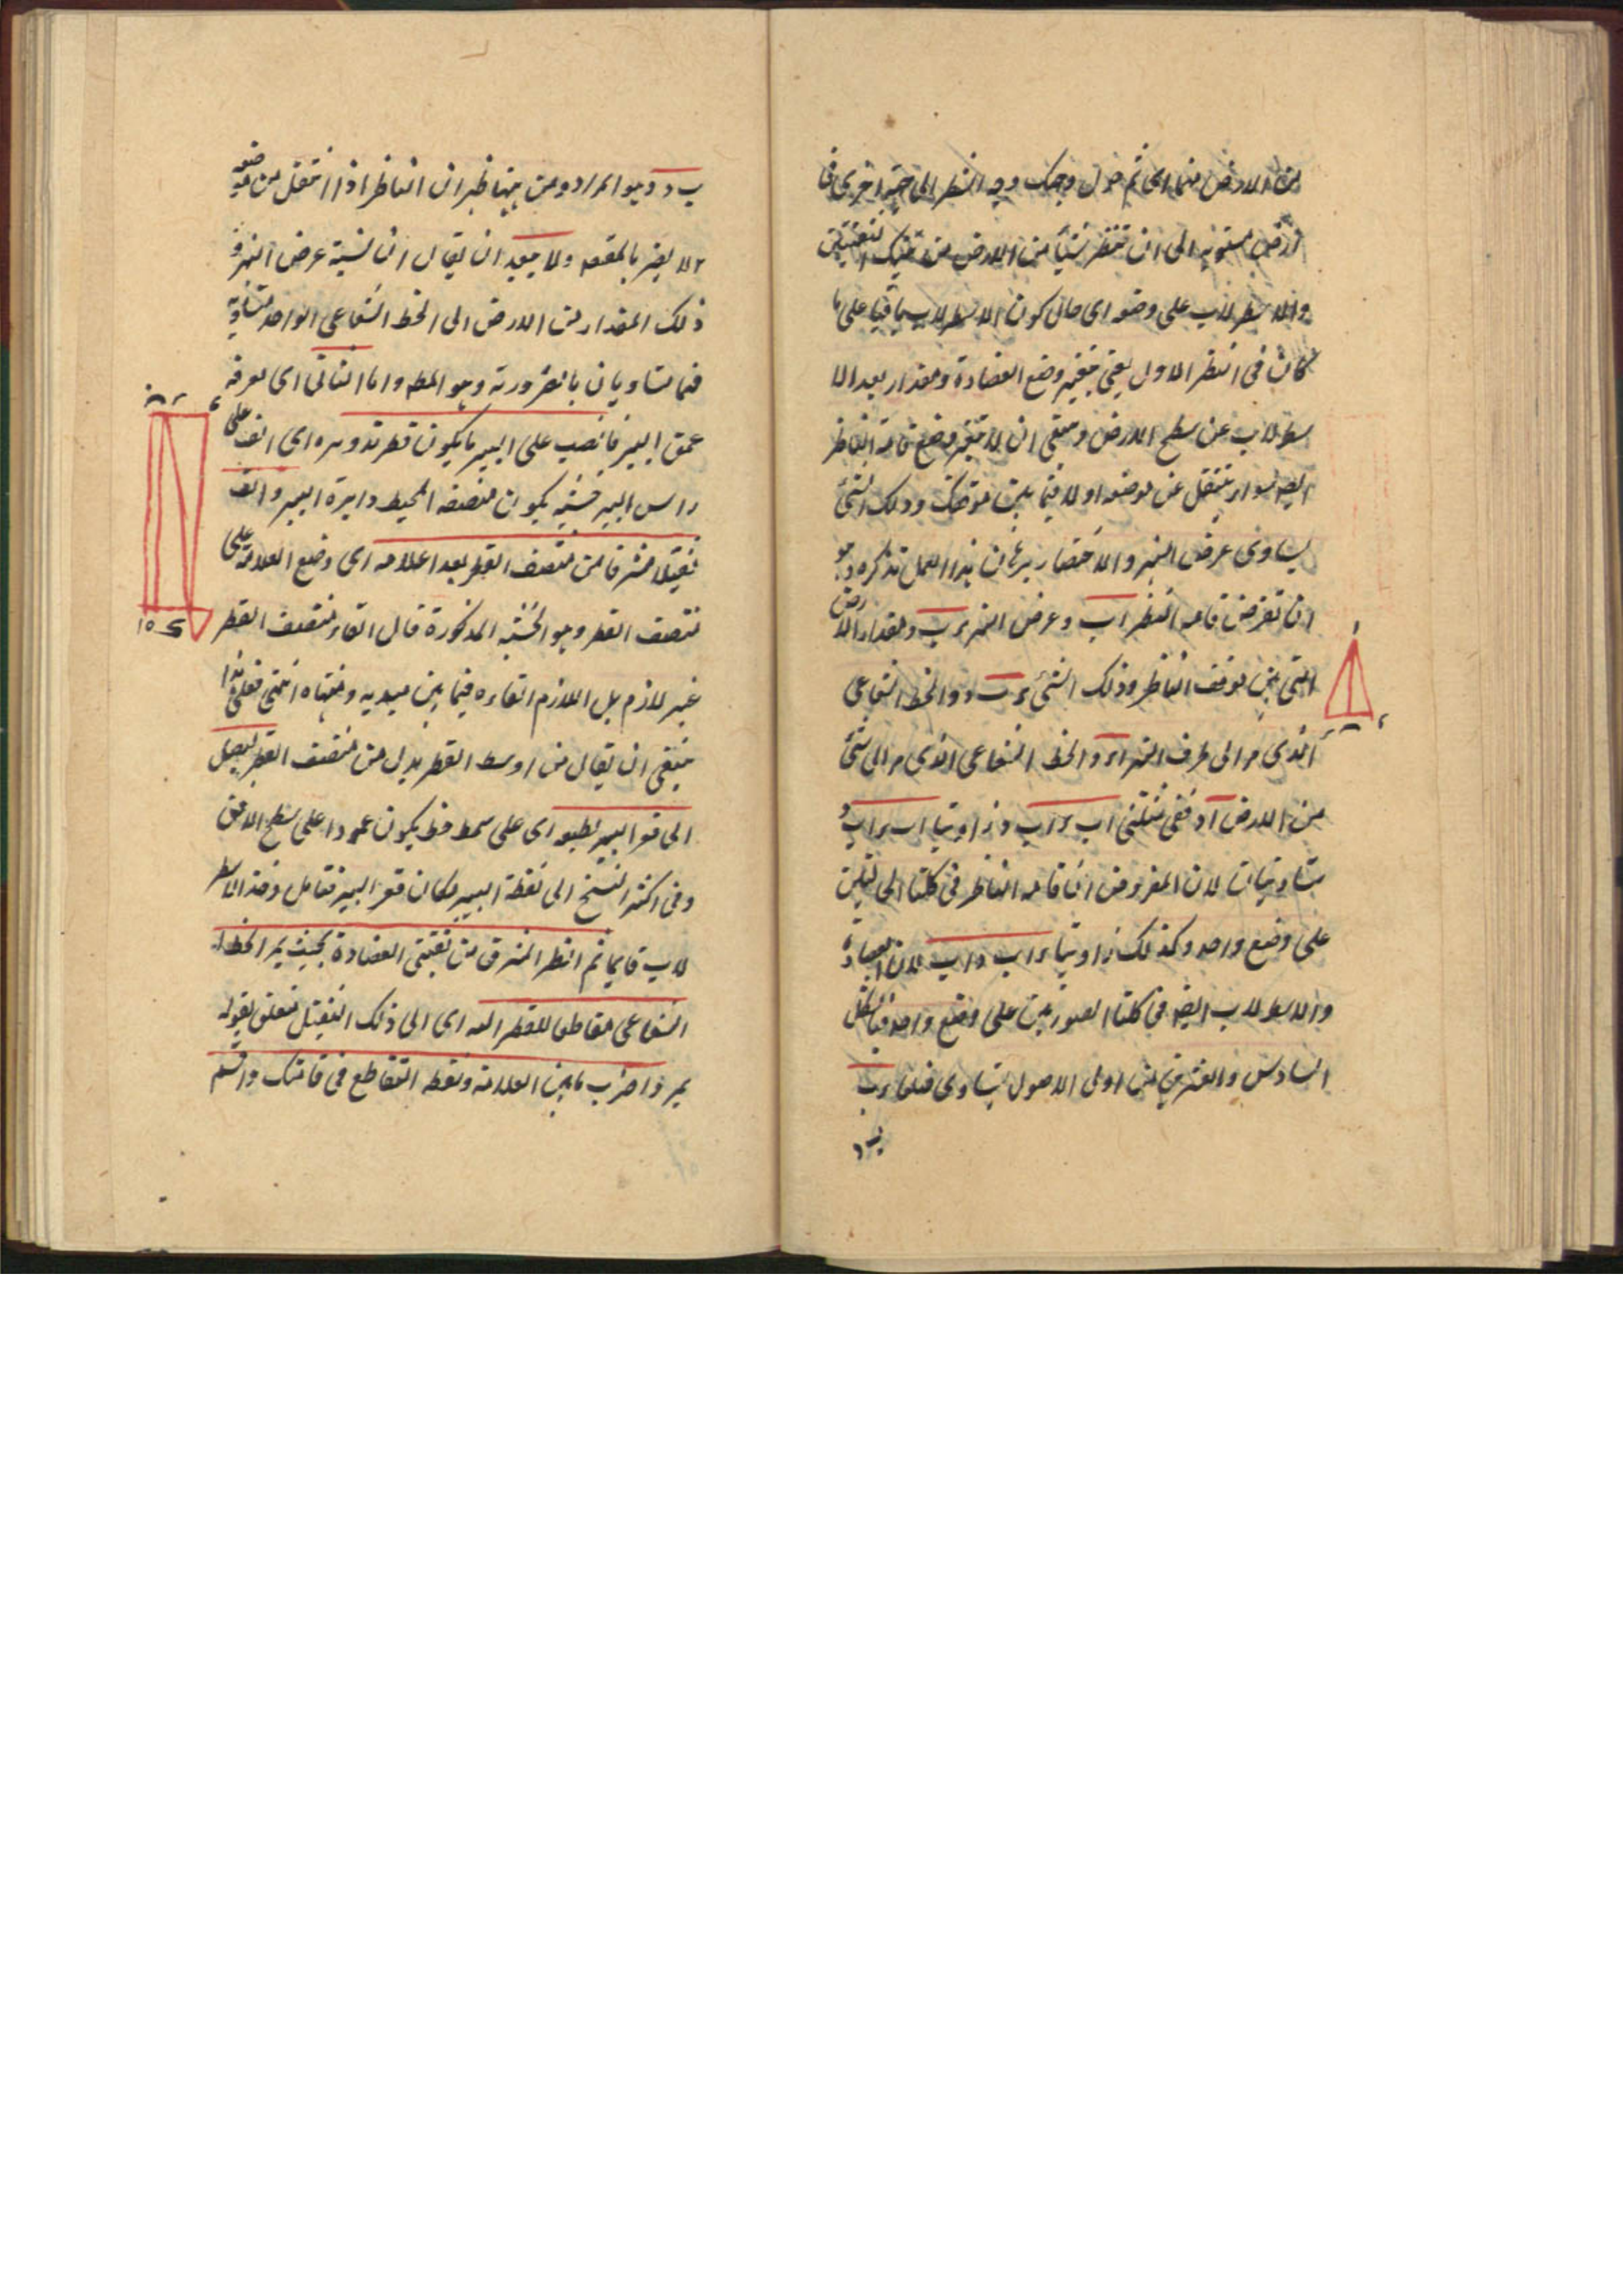 من الارض منها اى ثم حول وجهك وجه النظر الى جهة اخرى فى
ارض مستويه الى ان تنظر شيأ من الارض من تينك الثقبتين
والاسطرلاب على وضعه اى حال كون الاسطرلاب باقيا على ما
كان فى النظر الاول يعنى وضع العضادة ومقدار بعد الا
سطرلاب عن سطح الارض وينبغى ان لا يتغير وضع قامة الناظر
ايضا سواء ينتقل عن موضعه اولا فما بين موقفك وذلك الشئ
يساوى عرض النهر والاختصار برهان هذا العمل نذكره وهو
ان نفرض قامه الناظر اب وعرض النهر ء ب ومقدار الارض
التى بين موقف الناظر وذلك الشئ ب د والخط الشعاعى
الذى مر الى طرف النهر اء والخط الشعاعى الذى مر الى شئ
من الارض اد ففى مثلثى اب ء اب د زاويتا اب ء اب د
متساويتان لان المفروض ان قامه الناظر فى كلتا الحالتين
على وضع واحد وكذلك زاويتا ء اب د اب لان العضادة
والاسطرلاب ايضا فى كلتا الصورتين على وضع واحد فبالشكل
السادس والعشرين من اولى الاصول يتساوى ضلعا ء ب
ب د
ب د وهو المراد ومن ههنا ظهر ان الناظر اذا انتقل من موضعه
لا يضر بالمقصود ولا يبعد ان يقال ان نسبة عرض النهر و
ذلك المقدار من الارض الى الخط الشعاعى الواحد متساوية
فهما متساويان بالضرورة وهو المطلوب واما الثانى اى معرفة
عمق البير فانصب على البير ما يكون قطر تدويره اى الف على
راس البير خشبة يكون منصفه لمحيط دايرة البير والق
ثقيلا مشرقا من منتصف القطر بعد اعلامه اى وضع العلامة على
منتصف القطر وهو الخشبة المذكورة قال القاء منتصف القطر
غير لازم بل اللازم القاءه فيما بين مبديه ومنتهاه انتهى فعلى هذا
ينبغى ان يقال من اوسط القطر بدل من منتصف القطر ليصل
الى قعر البير بطبعه اى على سمط خط يكون عمودا على سطح الافق
وفى اكثر النسخ الى نقطة البير مكان قعر البير فتامل وخذ الاسطر
لاب قايما ثم انظر المشرق من ثقبتى العضادة بحيث يمر الخط
الشعاعى مقاطعا للقطر اليه اى الى ذلك الثقيل متعلق بقوله
يمر واضرب ما بين العلامة ونقطة التقاطع فى قامتك واقسم